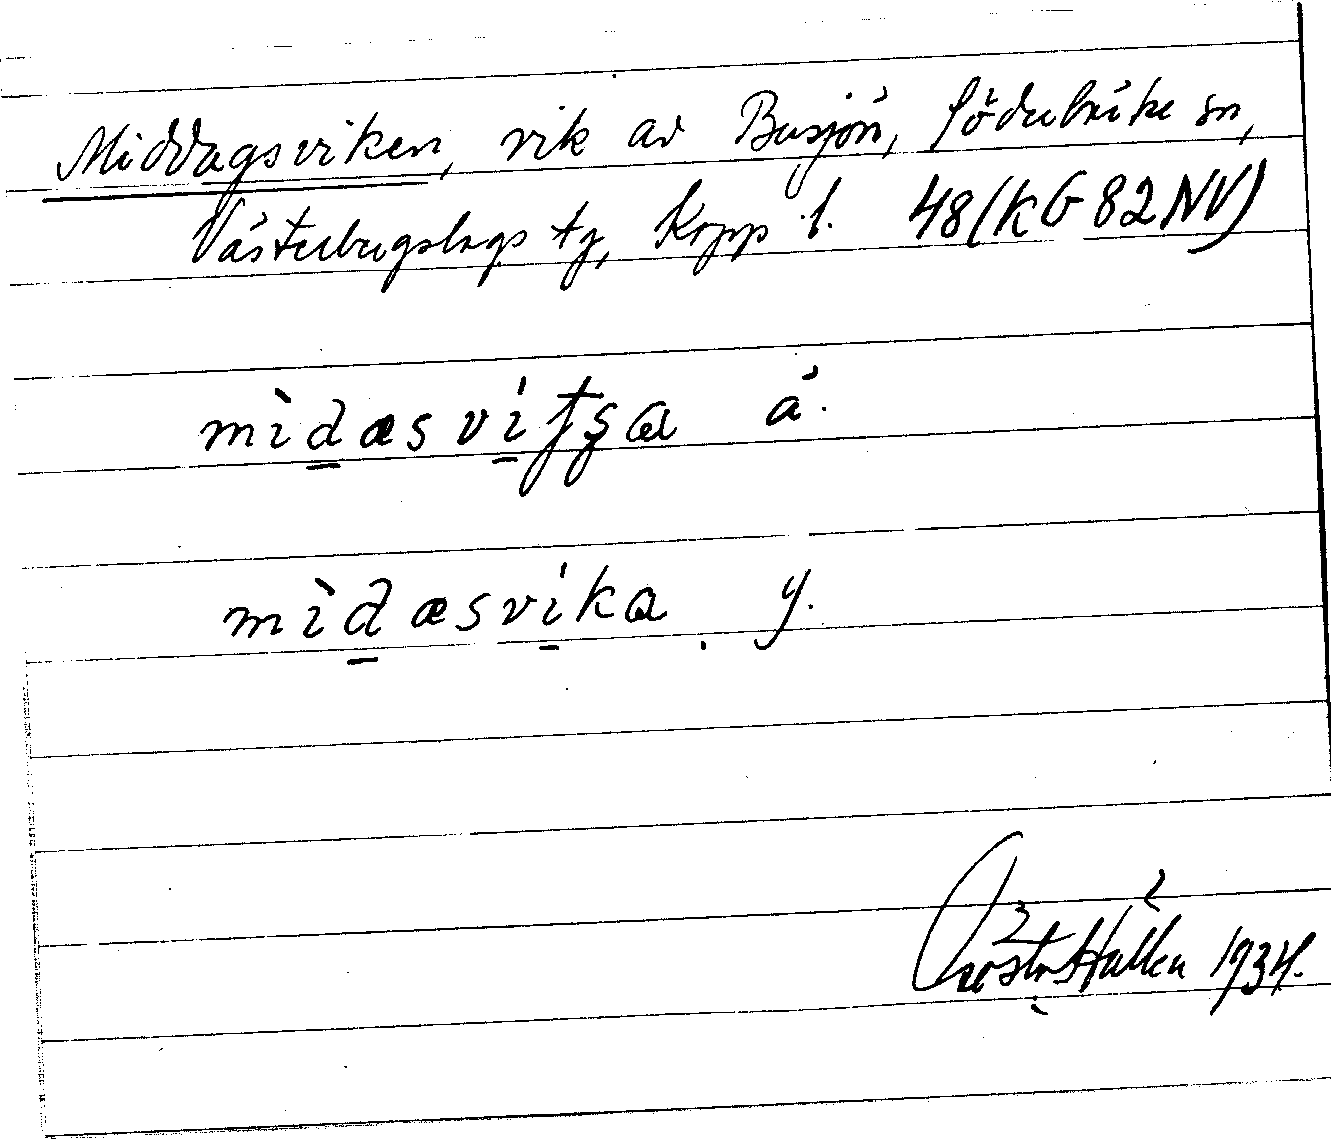 Middagsviken, vik av Busjön, Söderbärke sn,
Västerbergslags tg, Kopp. l. 48 (kG 82 NV)
mìd̲æsvi̲tʂɑ ä.
mìd̲æsvi̲kɑ y.
1934.